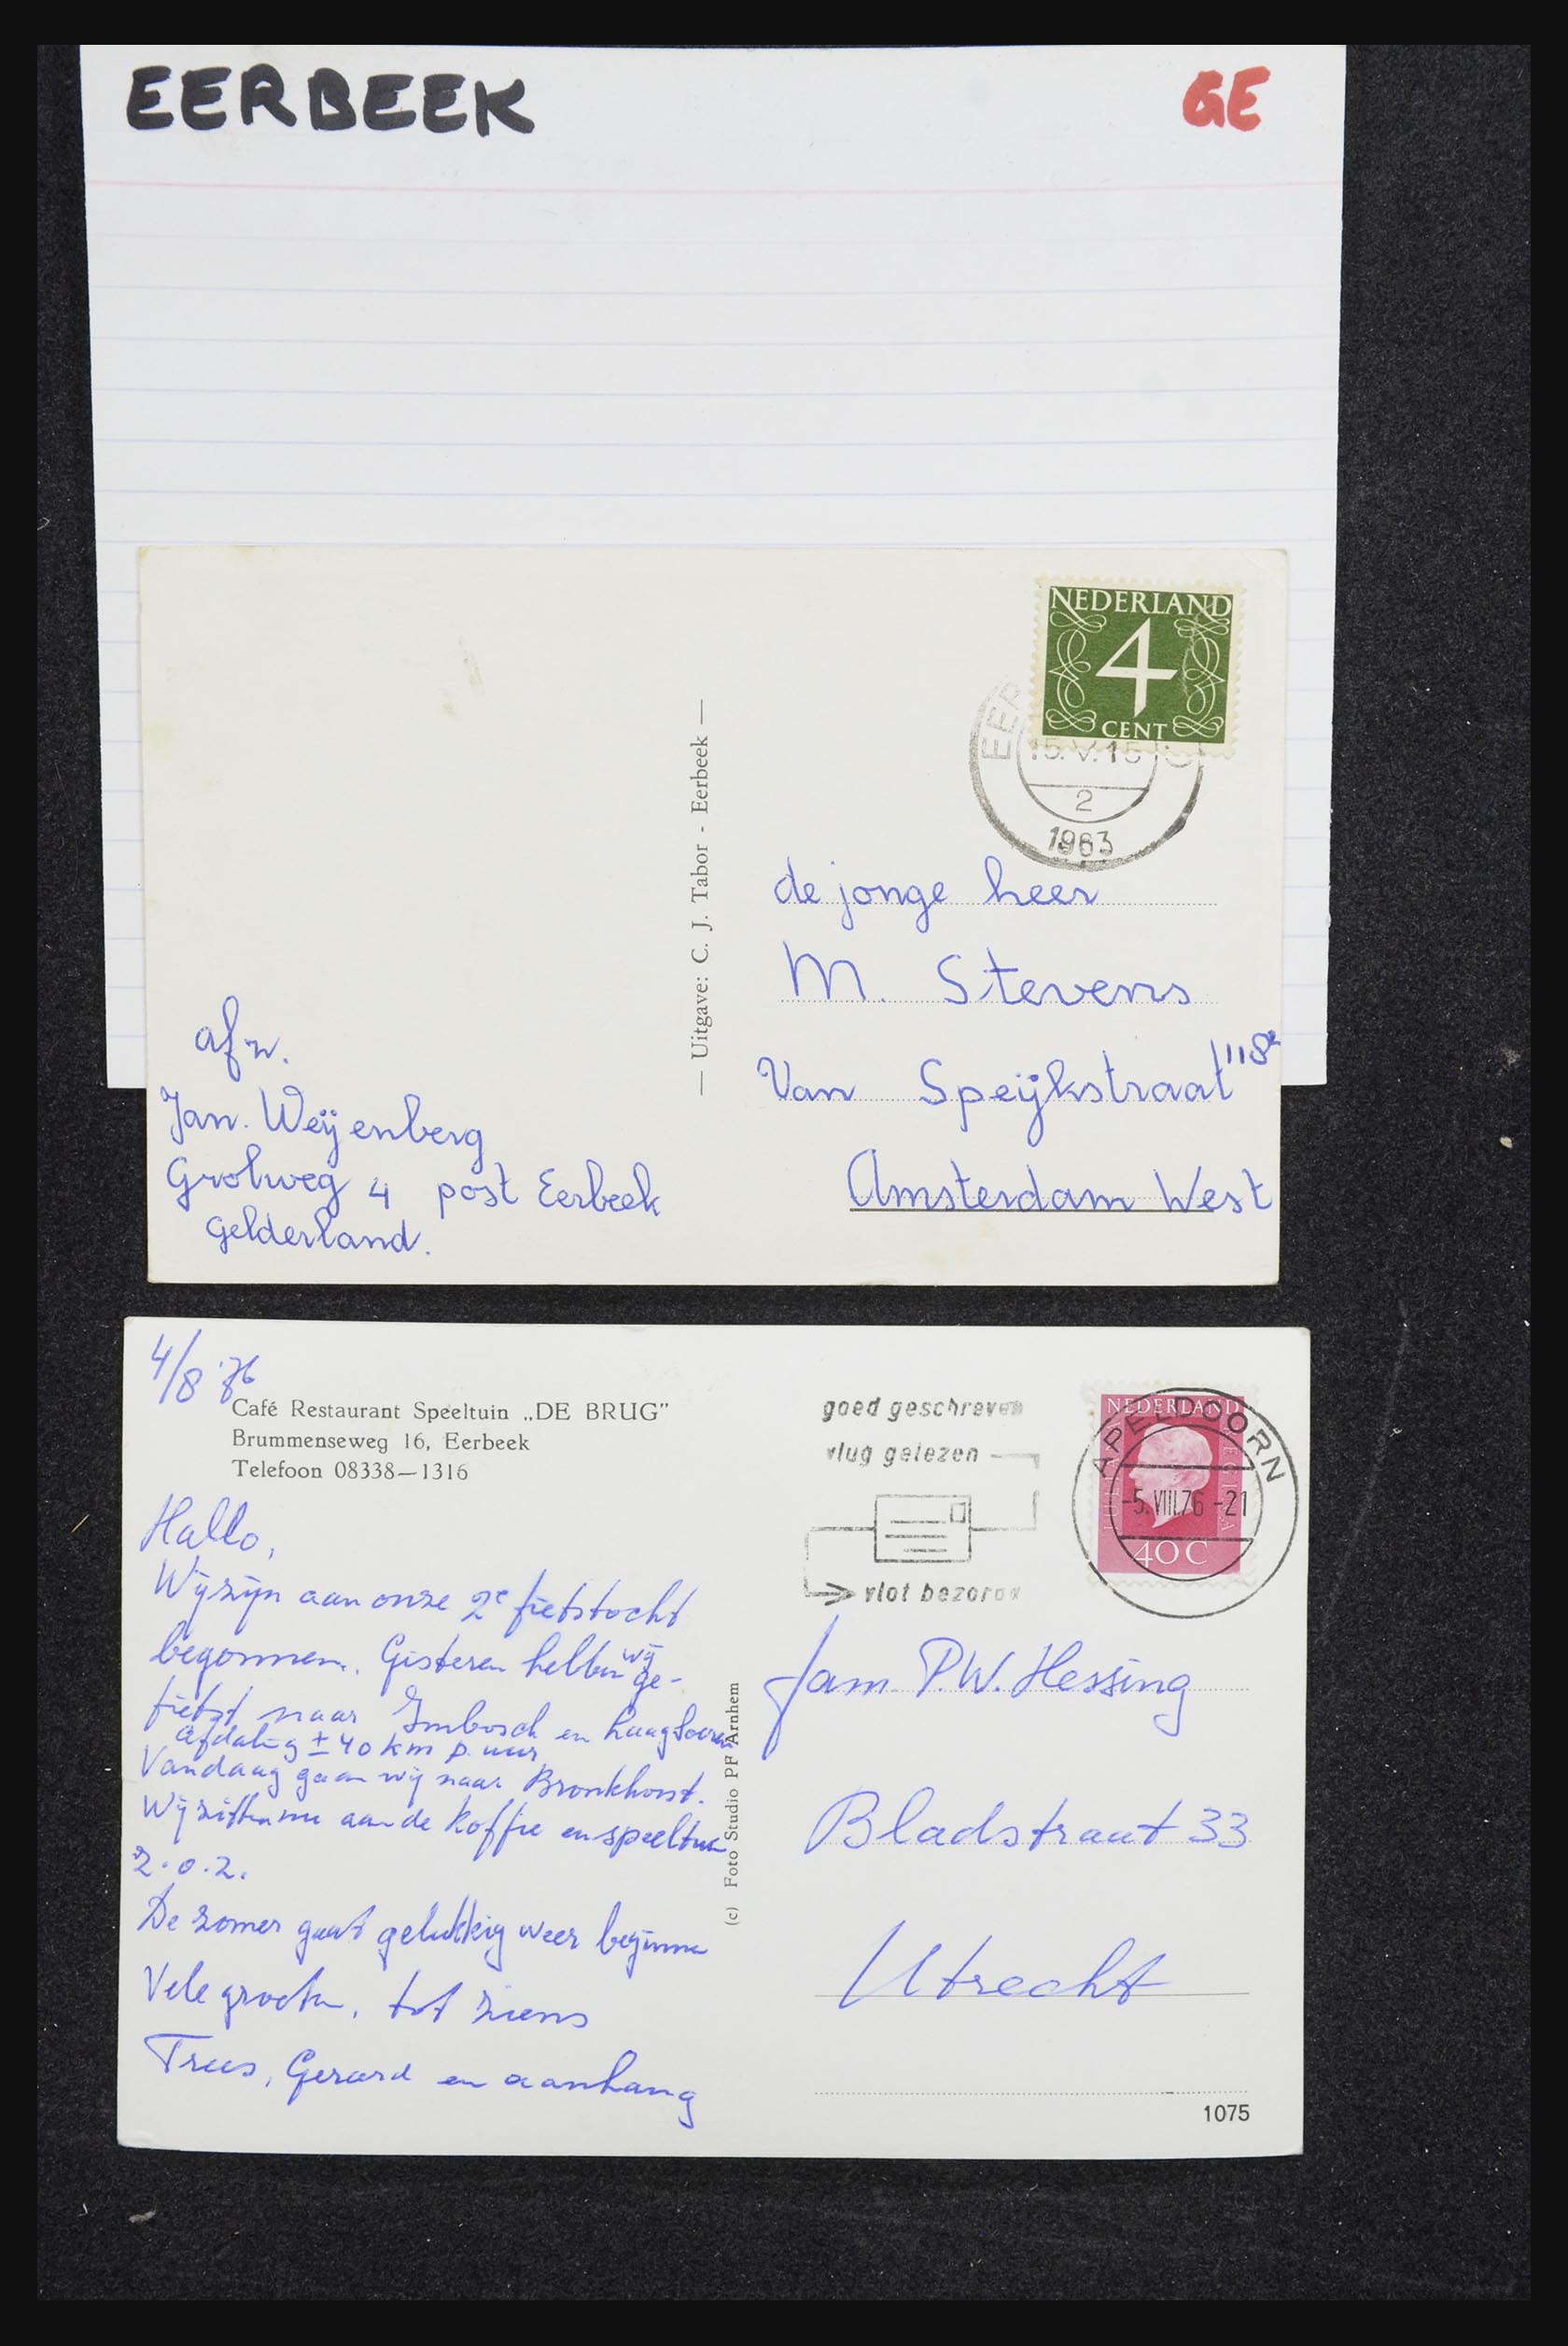 EERBEEK
GE
NEDERLAND
4
CENT
EER
15.V.
2
1963
— Uitgave: C. J. Tabor - Eerbeek —
de jonge heer
M. Stevens
Van Speijkstraat 118²
Amsterdam West
afz.
Jan. Weijenberg
Grolweg 4 post Eerbeek
Gelderland.
4/8 '76
Café Restaurant Speeltuin „DE BRUG”
Brummenseweg 16, Eerbeek
Telefoon 08338—1316
goed geschreven
vlug gelezen
vlot bezorg
NEDERLAND
APELDOORN
-5.VIII.76 -21
40 C
Hallo,
Wij zijn aan onze 2e fietstocht
begonnen. Gisteren hebben wij ge-
fietst naar Imbosch en Laag Soeren
afdaling ± 40 km p. uur
Vandaag gaan wij naar Bronkhorst.
Wij zitten nu aan de koffie en speeltuin
2.0.2.
De zomer gaat gelukkig weer beginnen
Vele groeten, tot ziens
Trees, Gerard en aanhang
(c) Foto Studio PF Arnhem
fam P.W. Hessing
Bladstraat 33
Utrecht
1075